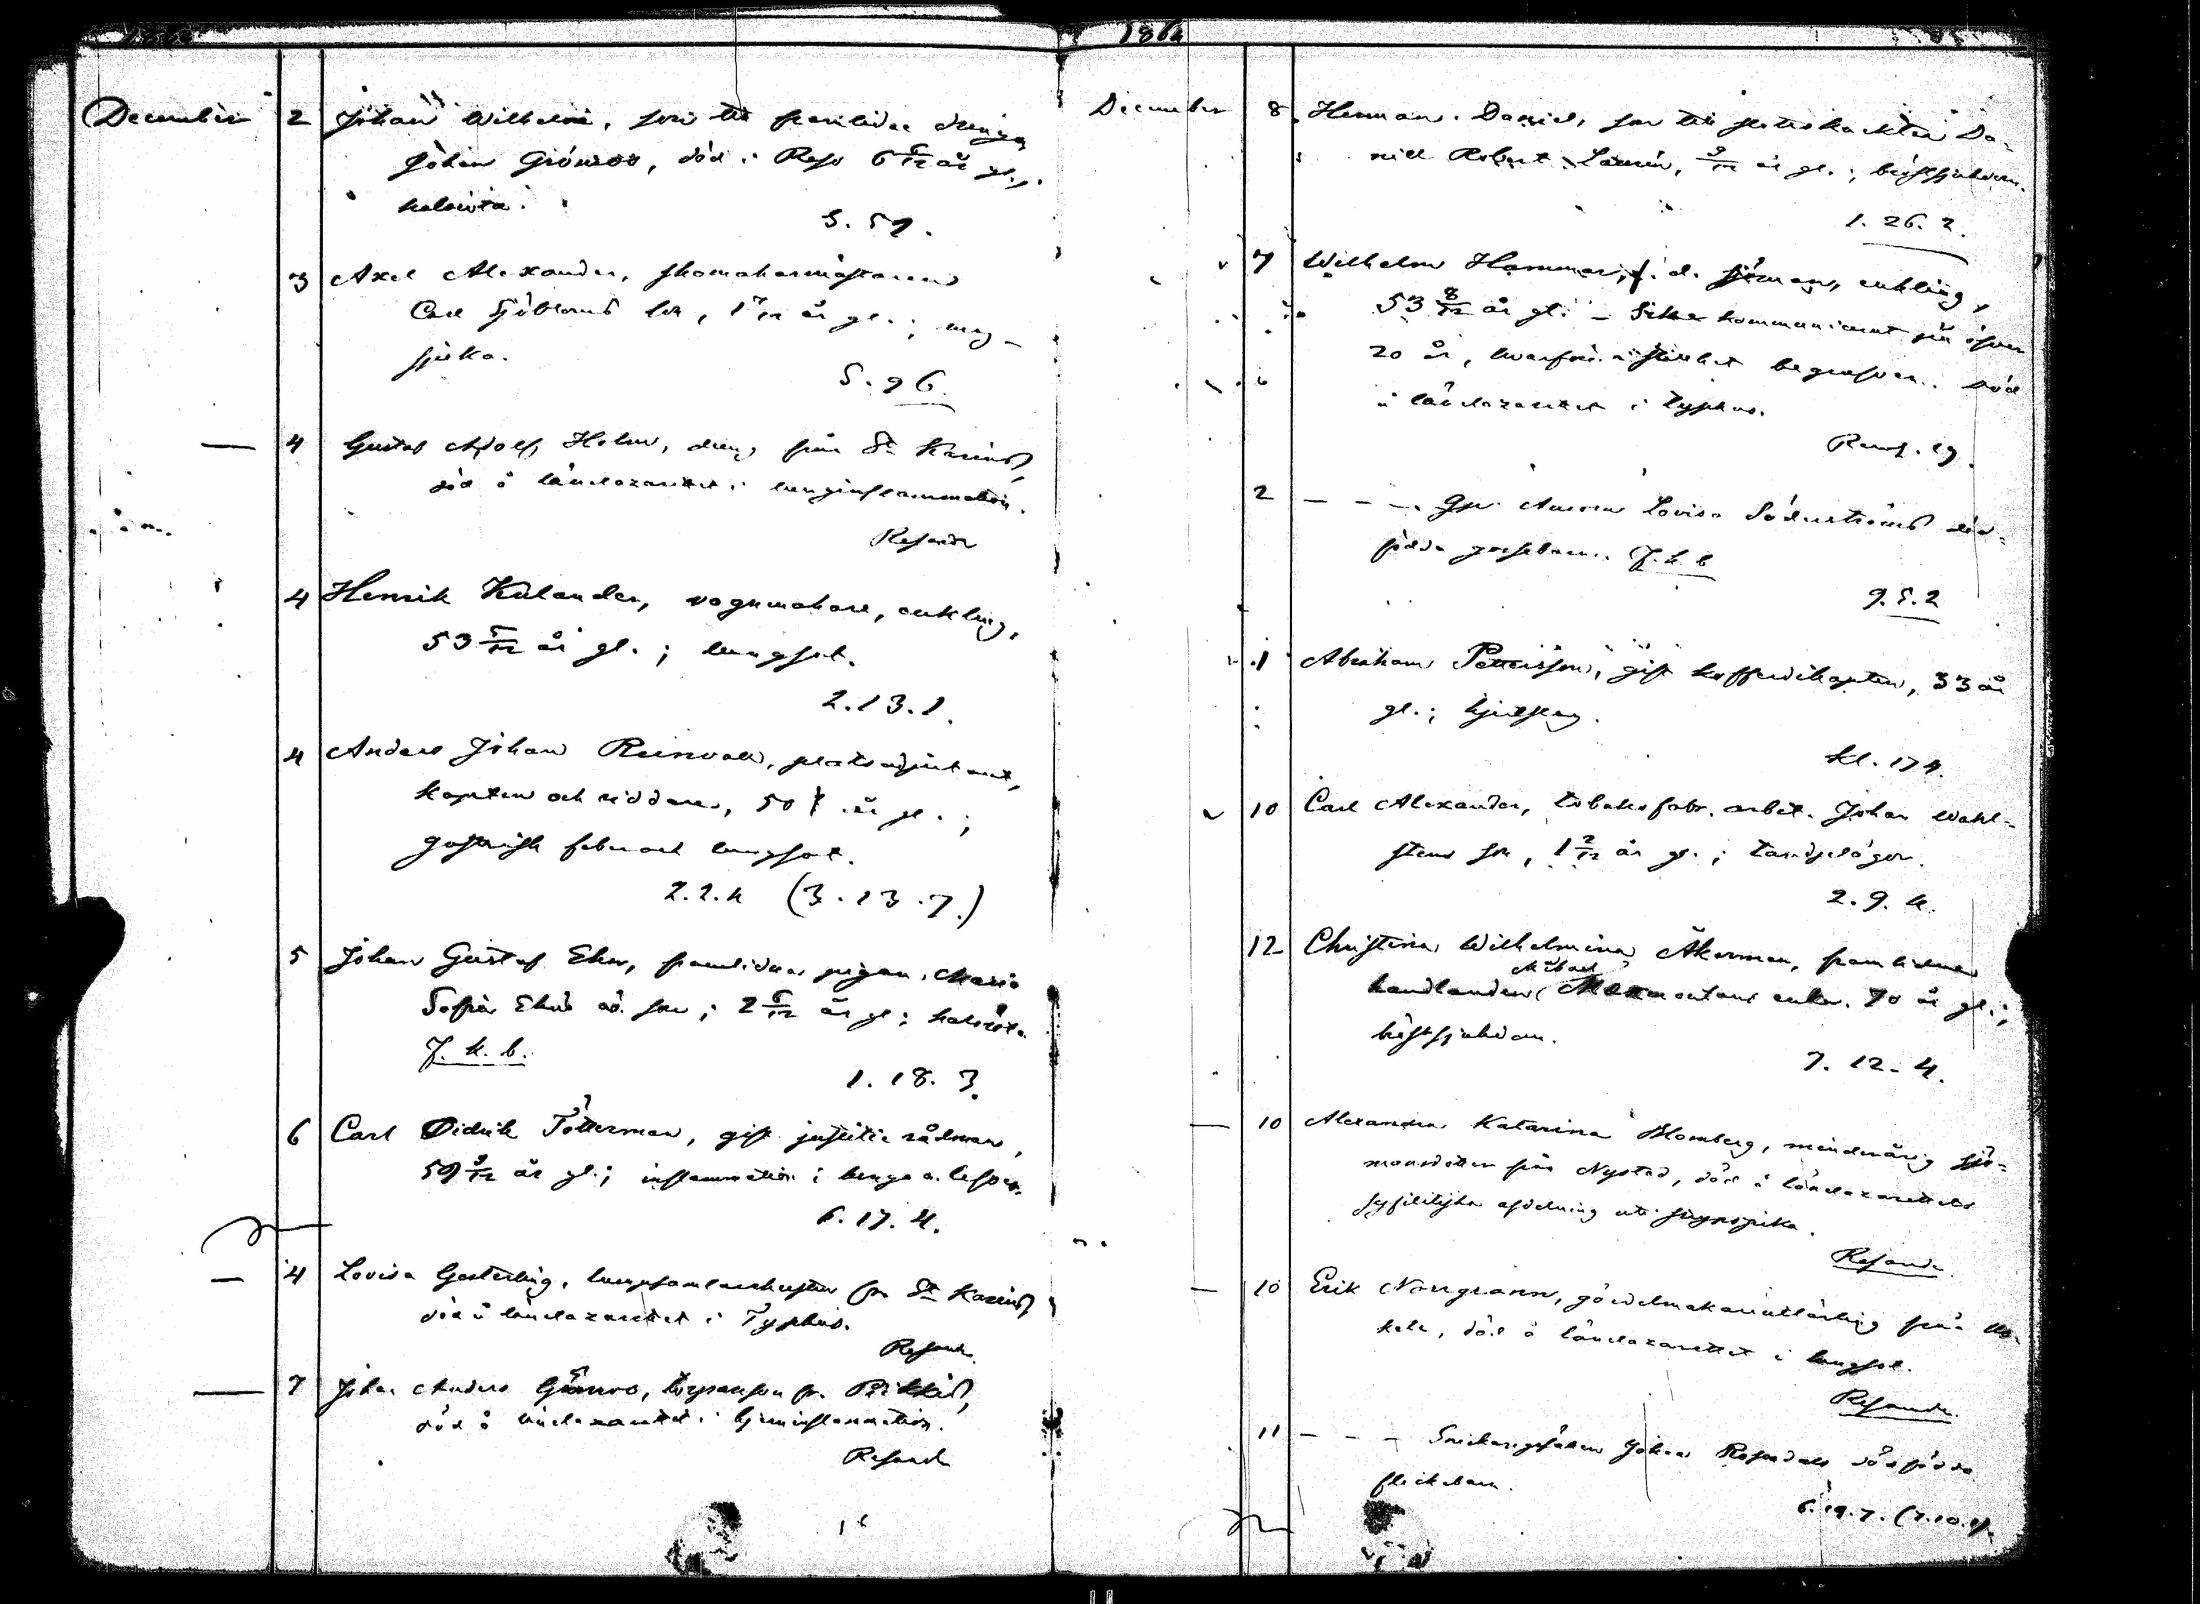 186
December 2 Johan Wilhelm, son till framlidne drengen
Johan Grönroos, död i Reso 6 5/12 år gl.,
halsröta.
3. 59.
3 Axel Alexander, skomakarmästaren
Carl Sjöbloms son, 1 /12 år gl.; mag-
sjuka.
5. 96.
4 Gustaf Adolf Holm, dreng från St Karins,
död å länelazarettet i lunginflammation.
Resande
4 Henrik Kulander, vagnmakare, enkling,
53 5/12 år gl.; lungsot.
2. 13. 1.
4 Anders Johan Reinvall, platsadjutant,
kapten och riddare, 50 år gl.;
gastrisk feber och lungsot.
2. 2. 4 (3. 13. 7.)
5 Johan Gustaf Ehn, framlidna pigan Maria
Sofia Ehns oä. son; 2 5/12 år gl; halsröta.
F. k. b.
1. 18. 3.
6 Carl Didrik Tötterman, gift justitie rådman,
59 9/12 år gl.; inflammation i lunga o. lefver.
6. 17. 4.
4 Lovisa Gesterling, lumpsamlarehustru fr. St Karins,
död å länelazarettet i Typhus.
Resande.
7 Johan Anders Grönroos, torpareson fr. Pikkis,
död å länelazarettet i hjerninflammation.
Resande
December 8 Herman Daniel, son till slottsvaktaren Da-
niel Robert Laurén, 9/12 år gl.; bröstsjukdom.
1. 26. 2.
7 Wilhelm Hammar, f. d. sjöman, enkling,
53 8/12 år gl. – Icke kommunicerat på öfver
20 år, hvarföre i stillhet begrafven. död
å länelazarettet i Typhus.
Res. 19.
2 – – –. Gp. Aurora Lovisa Söderströms död-
födda gossebarn. F. k. b
9. 5. 2
1 Abraham Pettersson, gift kofferdikapten, 33 år
gl.; hjertslag.
Kl. 174.
10 Carl Alexander, tobaksfabr. arbet. Johan Wahl-
stens son, 1 2/12 år gl.; tandplågor.
2. 9. 4.
12 Christina Wilhelmina Åkerman, framlidne
handlanden Michael enka. 70 år gl.;
bröstsjukdom.
7. 12. 4.
10 Alexandra Katarina Blomberg, minderårig sjö-
mansdotter från Nystad, död å länelazarettets
syfilitiska afdelning uti strypsjuka.
Resande.
10 Erik Norrgrann, gördelmakarelärling från
död å länelazarettet i lungsot.
Resande.
11 – – – Snickargesällen Johan Rosendals dödfödda
flickebarn.
6. 19. 7. (7. 10. 4).